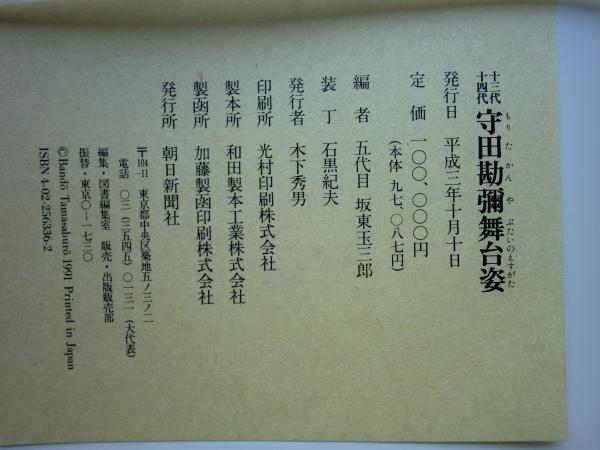 十三代
十四代
守田勘彌舞台姿
もりたかんやぶたいのえすがた
発行日 平成三年十月十日
定価 一〇〇、〇〇〇円
(本体 九七、〇八七円)
編者 五代目 坂東玉三郎
装丁 石黒紀夫
発行者 木下秀男
印刷所 光村印刷株式会社
製本所 和田製本工業株式会社
製函所 加藤製函印刷株式会社
発行所 朝日新聞社
〒104-11 東京都中央区築地五ノ三ノ二
電話 〇三(三五四五)〇一三一(大代表)
編集・図書編集室 販売・出版販売部
振替・東京〇―一七三〇
©Bandō Tamasaburō 1991 Printed in Japan
ISBN4-02-256336-2